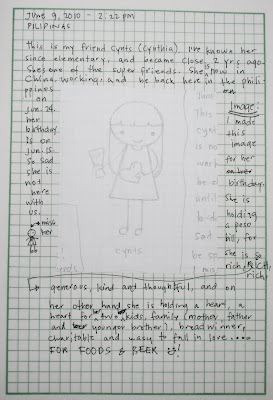 JUNE 9, 2010 - 2:22 pm
PILIPINAS
this is my friend Cynts (cynthia) I've known her
since elementary, and became close is 2 yrs ago.
She's one of the super friends. She's now in
China, working. and be back here in the phili-
ppines
on
June 24.
her
birthday
is on
Jun. 15.
so sad
she is
not
here
with
us.
miss
her
cynts
on
Image:
I made
this
image
for her
birthday.
She is
holding
a peso
bill, for
rich, RICH,
rich,
generous, kind and thoughtful, and on
her other hand, she is holding a heart, a
heart for two kids, family (mother, father
and younger brother), breadwinner,
charitable and easy to fall in love....
FOR FOODS & BEER